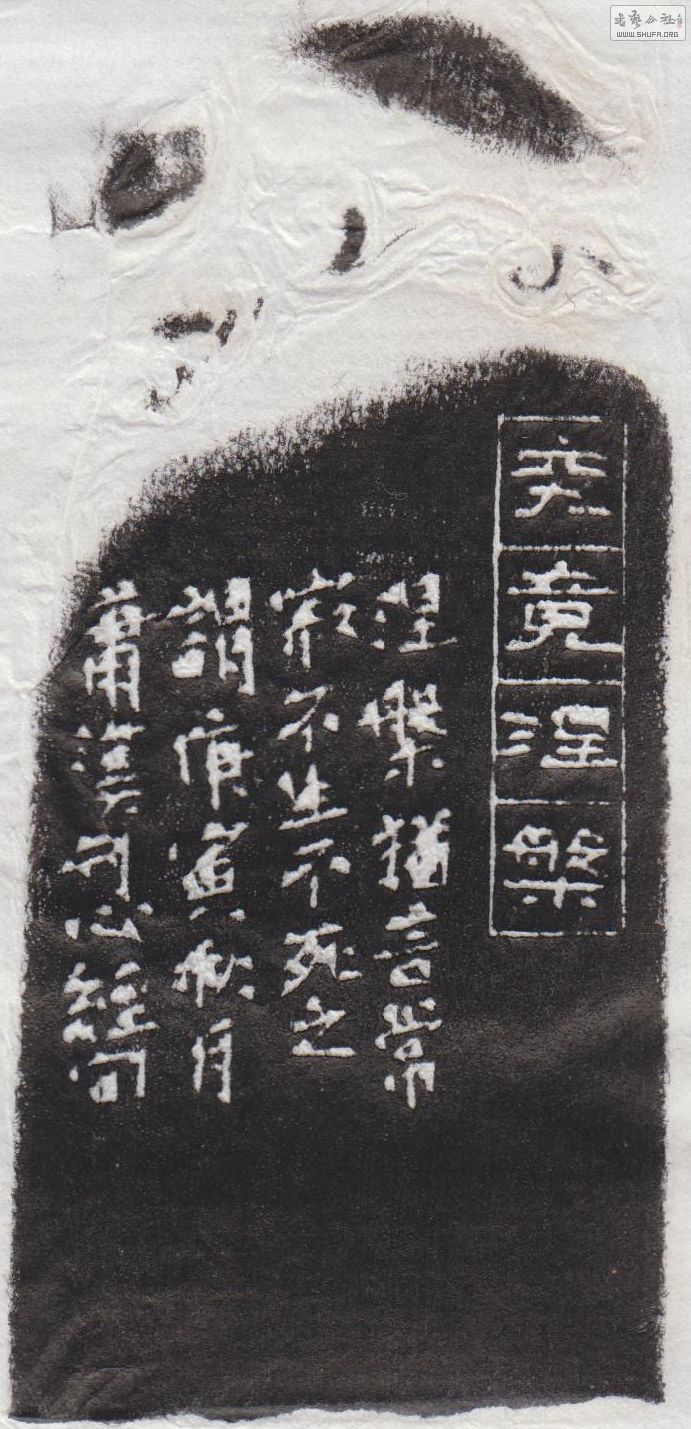 书艺公社
WWW.SHUFA.ORG
究竟涅槃
涅槃猶言常
寂不生不死之
謂庚寅秋月
蕭心經句